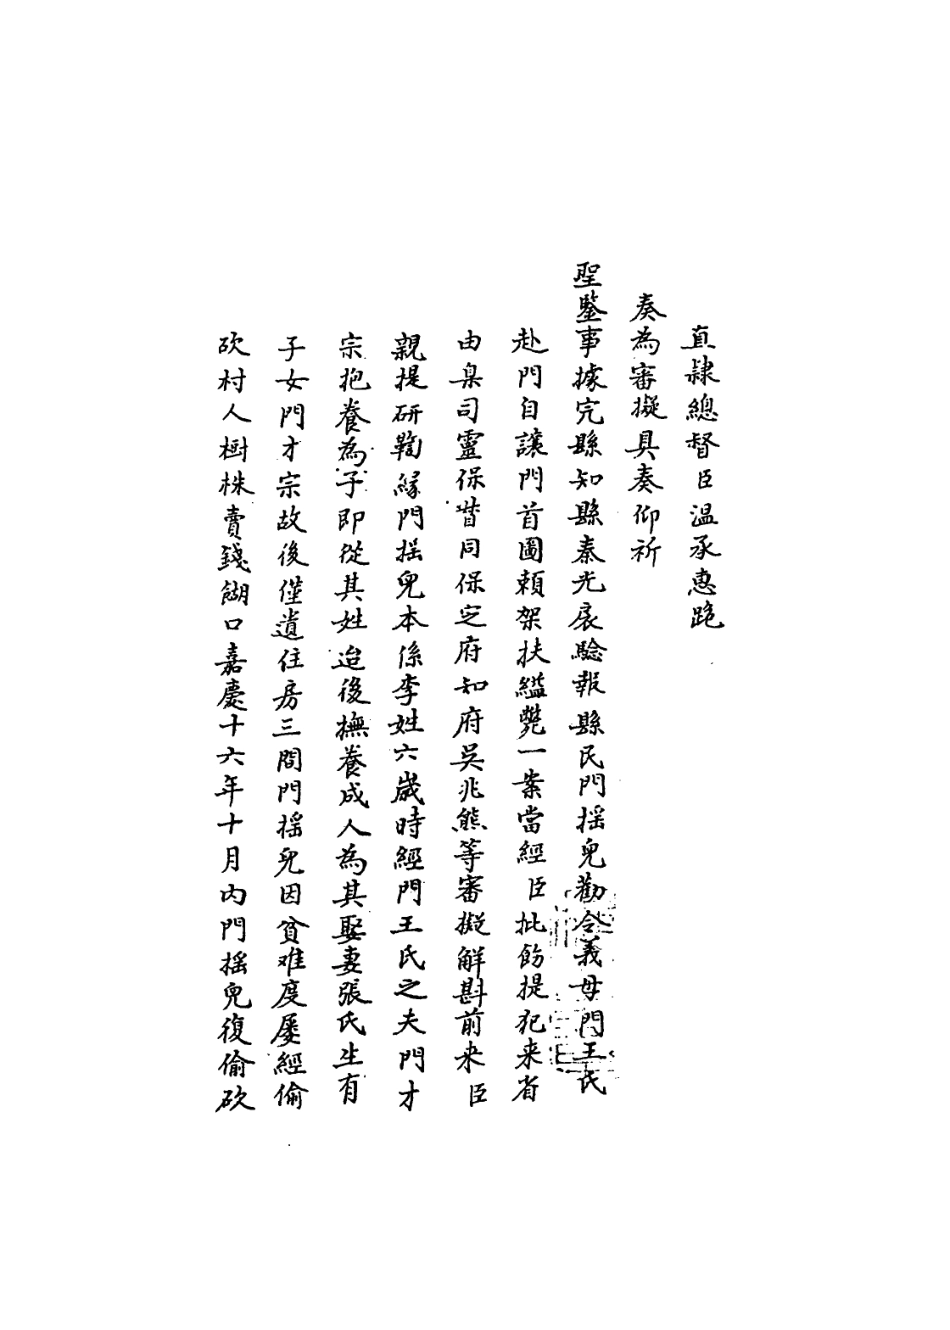 直隸總督臣温承惠跪
奏為審擬具奏仰祈
聖鑒事據完縣知縣秦光扆驗報縣民門揺兒勸令義母門王氏
赴門自讓門首圖賴架扶縊斃一案當經臣批飭提犯来省
由臬司靈保督同保定府知府吳兆熊等審擬解斟前来臣
親提研鞫緣門揺兒本係李姓六歲時經門王氏之夫門才
宗抱養為子即從其姓迨後撫養成人為其娶妻張氏生有
子女門才宗故後僅遺住房三間門揺兒因貧难度屡經偷
砍村人樹株賣錢餬口嘉慶十六年十月內門揺兒復偷砍